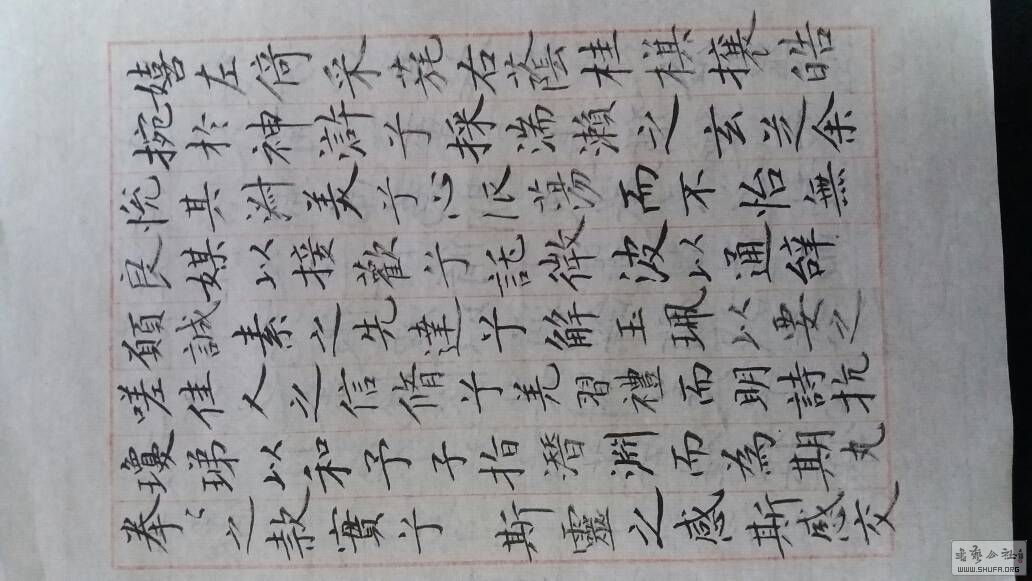 嬉左倚采旄右蔭桂棋攘皓
捥於神滸兮採湍瀨之玄芝余
悅其淑美兮心振蕩而不怡無
良媒以接歡兮託微波以通辭
願誠素之先達兮解玉珮以要之
嗟佳人之信脩兮羌習禮而明詩抗
瓊珶以和予兮指潛淵而為期
拳々之款實兮斯靈之感斯感交
WWW.SHUFA.ORG